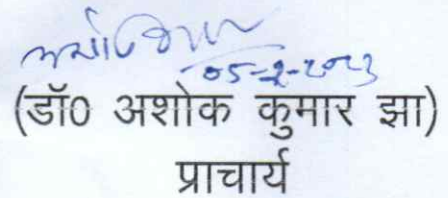 05-2-2023
(डॉ0 अशोक कुमार झा)
प्राचार्य